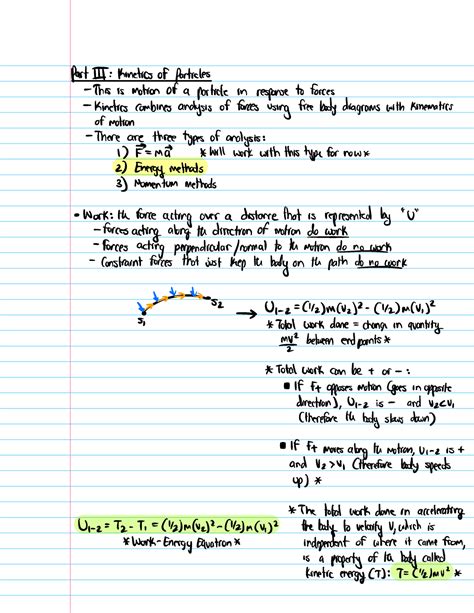 Part III: Kinetics of Particles
- This is motion of a particle in response to forces
- Kinetics combines analysis of forces using free body diagrams with kinematics
of motion
- There are three types of analysis:
1) F⃗ = ma⃗ *Will work with this type for now*
2) Energy methods
3) Momentum methods
• Work: the force acting over a distance that is represented by "U"
- forces acting along the direction of motion do work
- forces acting perpendicular/normal to the motion do no work
- Constraint forces that just keep the body on the path do no work
S₁ S₂ → U₁₋₂ = (1/2)m(v₂)² - (1/2)m(v₁)²
*Total work done = change in quantity
mv²/2 between endpoints*
*Total work can be + or -:
■ If Ft opposes motion (goes in opposite
direction), U₁₋₂ is - and v₂<v₁
(therefore the body slows down)
■ If Ft moves along the motion, U₁₋₂ is +
and v₂>v₁ (therefore body speeds
up) *
U₁₋₂ = T₂ - T₁ = (1/2)m(v₂)² - (1/2)m(v₁)²
*Work-Energy Equation*
*The total work done in accelerating
the body to velocity V, which is
independent of where it came from,
is a property of the body called
kinetic energy (T): T = (1/2)mv² *